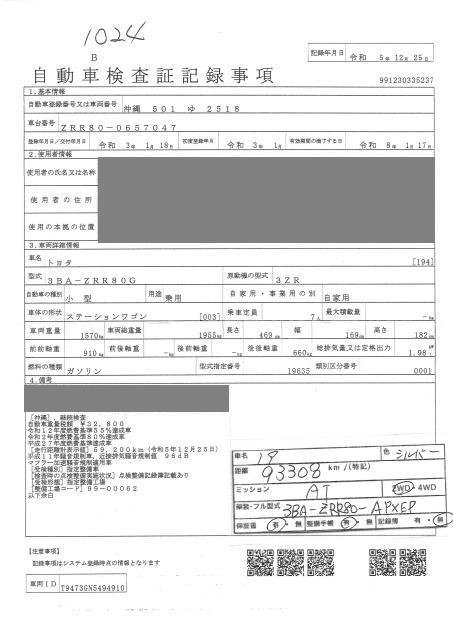 1024
B
記録年月日 令和 5年 12月 25日
自動車検査証記録事項
991230335237
1.基本情報
自動車登録番号又は車両番号 沖縄 501 ゆ 2518
車台番号
ZRR80-0657047
登録年月日/交付年月日 令和 3年 1月 18日 初度登録年月 令和 3年 1月 有効期間の満了する日 令和 8年 1月 17日
2.使用者情報
使用者の氏名又は名称
使用者の住所
使用の本拠の位置
3.車両詳細情報
車名
トヨタ [194]
型式 3BA-ZRR80G 原動機の型式 3ZR
自動車の種別 小型 用途 乗用 自家用・事業用の別 自家用
車体の形状 ステーションワゴン [003] 乗車定員 7人 最大積載量 -kg
車両重量 1570kg 車両総重量 1955kg 長さ 469cm 幅 169cm 高さ 182cm
前前軸重 910kg 前後軸重 -kg 後前軸重 -kg 後後軸重 660kg 総排気量又は定格出力 1.98
燃料の種類 ガソリン 型式指定番号 19635 類別区分番号 0001
4.備考
[沖縄],継続検査
自動車重量税額 ¥32,800
令和12年度燃費基準55%達成車
令和2年度燃費基準80%達成車
平成27年度燃費基準達成車
[走行距離計表示値] 59,200km (令和5年12月25日)
平成11年騒音規制車,近接排気騒音規制値 96dB
マフラー加速騒音規制適用車
[受検種別] 指定整備車
[検査時の点検整備実施状況] 点検整備記録簿記載あり
[受検形態] 指定整備車
[整備工場コード] 99-00062
以下余白
車名 18 色 シルバー
距離 93308 km/(特記)
ミッション AT 2WD・4WD
類装・フル型式 3BA-ZRR80-APXEP
保証書 有・無 整備手帳 有・無 記録簿 有・無
【注意事項】
記録事項はシステム登録時点の情報となります
車両ID T9473GN5494910